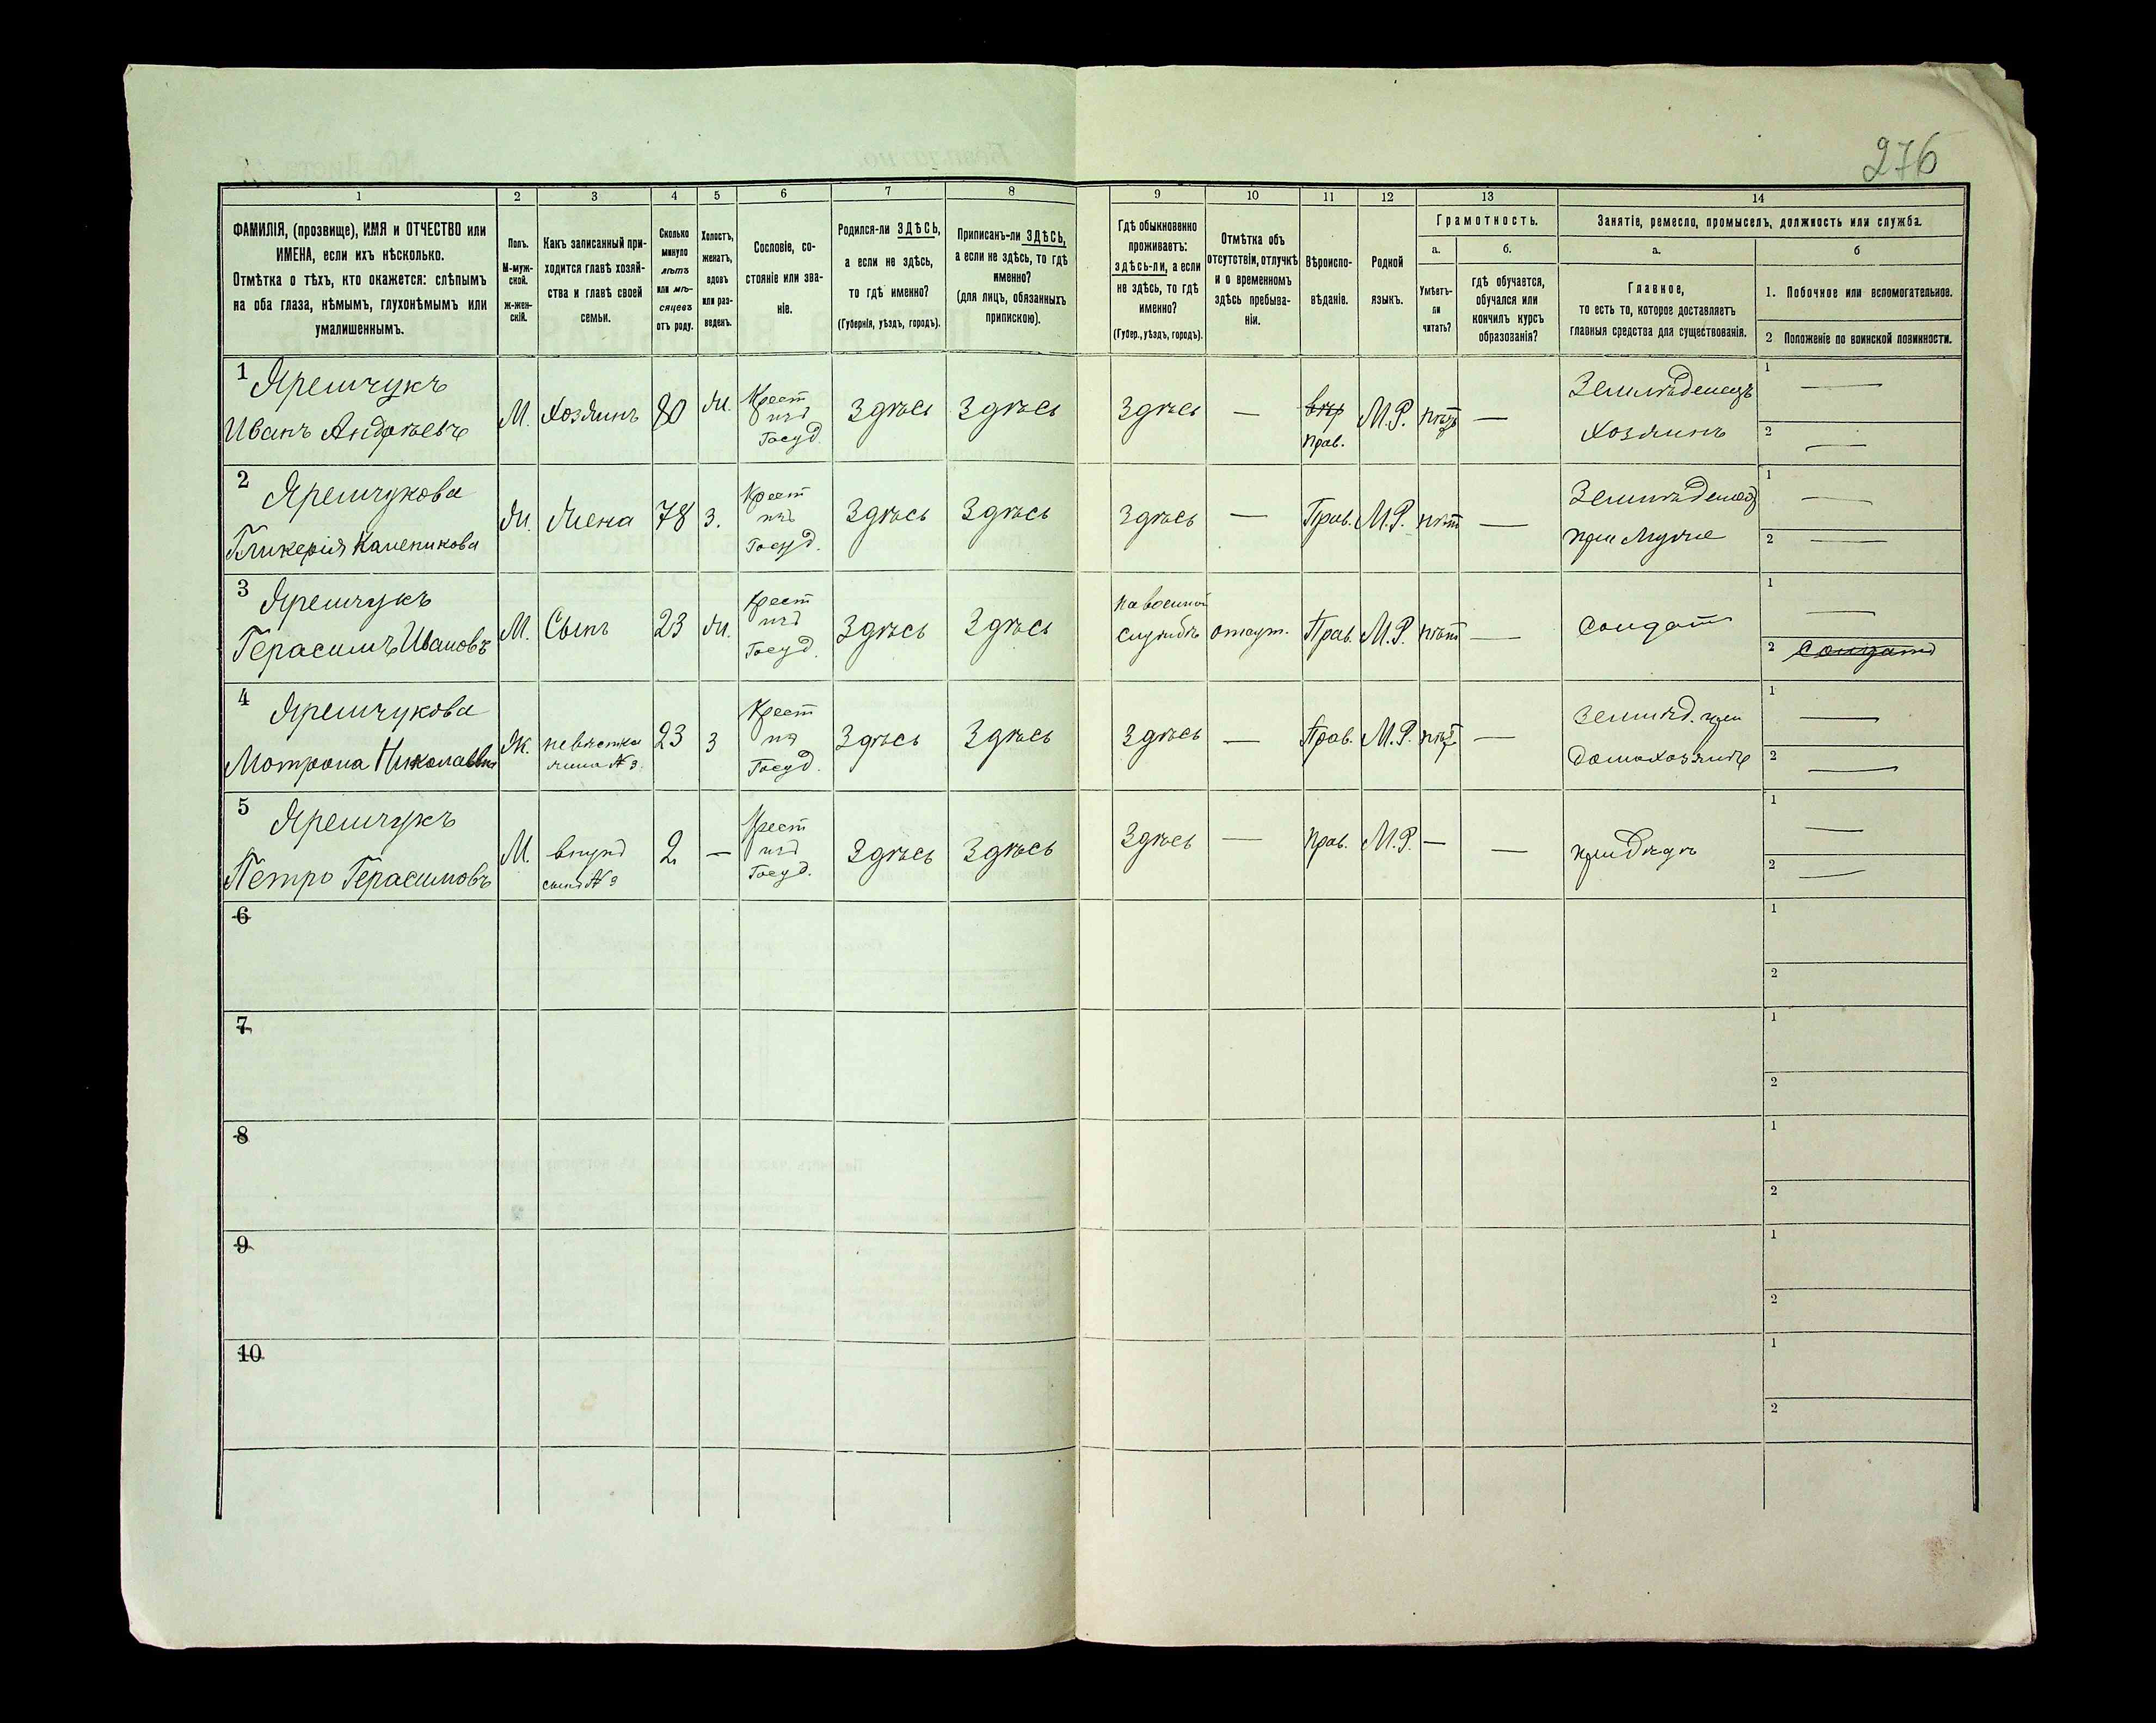 276
1 2 3 4 5 6 7 8 9 10 11 12 13 14
ФАМИЛІЯ, (прозвище), ИМЯ и ОТЧЕСТВО или
ИМЕНА, если ихъ нѣсколько.
Отмѣтка о тѣхъ, кто окажется: слѣпымъ
на оба глаза, нѣмымъ, глухонѣмымъ или
умалишеннымъ.
Полъ.
М-муж-
ской.
ж-жен-
скій.
Какъ записанный при-
ходится главѣ хозяй-
ства и главѣ своей
семьи.
Сколько
минуло
лѣтъ
или мѣ-
сяцевъ
отъ роду.
Холостъ,
женатъ,
вдовъ
или раз-
веденъ.
Сословіе, со-
стояніе или зва-
ніе.
Родился-ли ЗДѢСЬ,
а если не здѣсь,
то гдѣ именно?
(Губернія, уѣздъ, городъ).
Приписанъ-ли ЗДѢСЬ,
а если не здѣсь, то гдѣ
именно?
(для лицъ, обязанныхъ
припискою).
Гдѣ обыкновенно
проживаетъ:
здѣсь-ли, а если
не здѣсь, то гдѣ
именно?
(Губер., уѣздъ, городъ).
Отмѣтка объ
отсутствіи, отлучкѣ
и о временномъ
здѣсь пребыва-
ніи.
Вѣроиспо-
вѣданіе.
Родной
языкъ.
Грамотность.
а.
Умѣетъ-
ли
читать?
б.
гдѣ обучается,
обучался или
кончилъ курсъ
образованія?
Занятіе, ремесло, промыселъ, должность или служба.
а.
Главное,
то есть то, которое доставляетъ
главныя средства для существованія.
б
1. Побочное или вспомогательное.
2 Положеніе по воинской повинности.
1 Ярешчукъ
Иванъ Андрѣевъ
М. Хозяинъ 80 ж. Крест
изъ
Госуд. Здѣсь Здѣсь Здѣсь — вѣр
прав. М.Р. нѣтъ — Землѣделецъ
хозяинъ 1 —
2 —
2 Ярешчукова
Гликерія
Ж. Жена 78 з. Крест
изъ
Госуд. Здѣсь Здѣсь Здѣсь — Прав. М.Р. нѣтъ — Землѣделец
при мужѣ 1 —
2 —
3 Ярешчукъ
Герасимъ Ивановъ
М. Сынъ 23 ж. Крест
изъ
Госуд. Здѣсь Здѣсь на военной
службѣ отсут. Прав. М.Р. нѣтъ — Солдатъ 1 —
2 Солдатъ
4 Ярешчукова
Мотрона Николаевна
Ж. невѣстка
жена № 3 23 з Крест
из
Госуд. Здѣсь Здѣсь Здѣсь — Прав. М.Р. нѣт — землѣд. при
домохозяинѣ 1 —
2 —
5 Ярешчукъ
Петро Герасимовъ
М. внукъ
сынъ № 3 2 — Крест
изъ
Госуд. Здѣсь Здѣсь Здѣсь — Прав. М.Р. — — при дѣдѣ 1 —
2 —
6 1
2
7 1
2
8 1
2
9 1
2
10 1
2